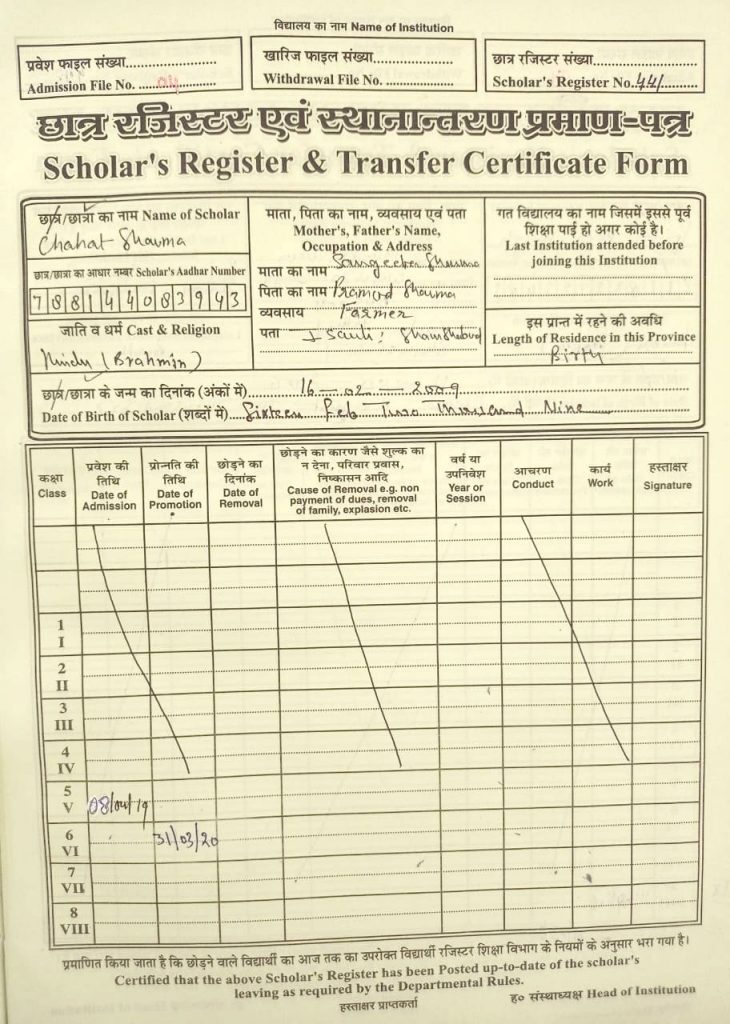 विद्यालय का नाम Name of Institution
प्रवेश फाइल संख्या....................
Admission File No. ...04...............
खारिज फाइल संख्या....................
Withdrawal File No. ......................
छात्र रजिस्टर संख्या.......................
Scholar's Register No. 441..........
छात्र रजिस्टर एवं स्थानान्तरण प्रमाण-पत्र
Scholar's Register & Transfer Certificate Form
छात्र/छात्रा का नाम Name of Scholar
Chahat Sharma
छात्र/छात्रा का आधार नम्बर Scholar's Aadhar Number
788144083943
जाति व धर्म Cast & Religion
Hindu (Brahmin)
माता, पिता का नाम, व्यवसाय एवं पता
Mother's, Father's Name,
Occupation & Address
माता का नाम Sangeeta Sharma
पिता का नाम Pramod Sharma
व्यवसाय Farmer
पता
गत विद्यालय का नाम जिसमें इससे पूर्व
शिक्षा पाई हो अगर कोई है।
Last Institution attended before
joining this Institution
इस प्रान्त में रहने की अवधि
Length of Residence in this Province
Birth
छात्र/छात्रा के जन्म का दिनांक (अंकों में) 16-02-2009
Date of Birth of Scholar (शब्दों में) Sixteen Feb Two Thousand Nine
कक्षा
Class
प्रवेश की
तिथि
Date of
Admission
प्रोन्नति की
तिथि
Date of
Promotion
छोड़ने का
दिनांक
Date of
Removal
छोड़ने का कारण जैसे शुल्क का
न देना, परिवार प्रवास,
निष्कासन आदि
Cause of Removal e.g. non
payment of dues, removal
of family, explasion etc.
वर्ष या
उपनिवेश
Year or
Session
आचरण
Conduct
कार्य
Work
हस्ताक्षर
Signature
1
I
2
II
3
III
4
IV
5
V 08/04/19
6
VI 31/03/20
7
VII
8
VIII
प्रमाणित किया जाता है कि छोड़ने वाले विद्यार्थी का आज तक का उपरोक्त विद्यार्थी रजिस्टर शिक्षा विभाग के नियमों के अनुसार भरा गया है।
Certified that the above Scholar's Register has been Posted up-to-date of the scholar's
leaving as required by the Departmental Rules.
हस्ताक्षर प्राप्तकर्ता
ह० संस्थाध्यक्ष Head of Institution